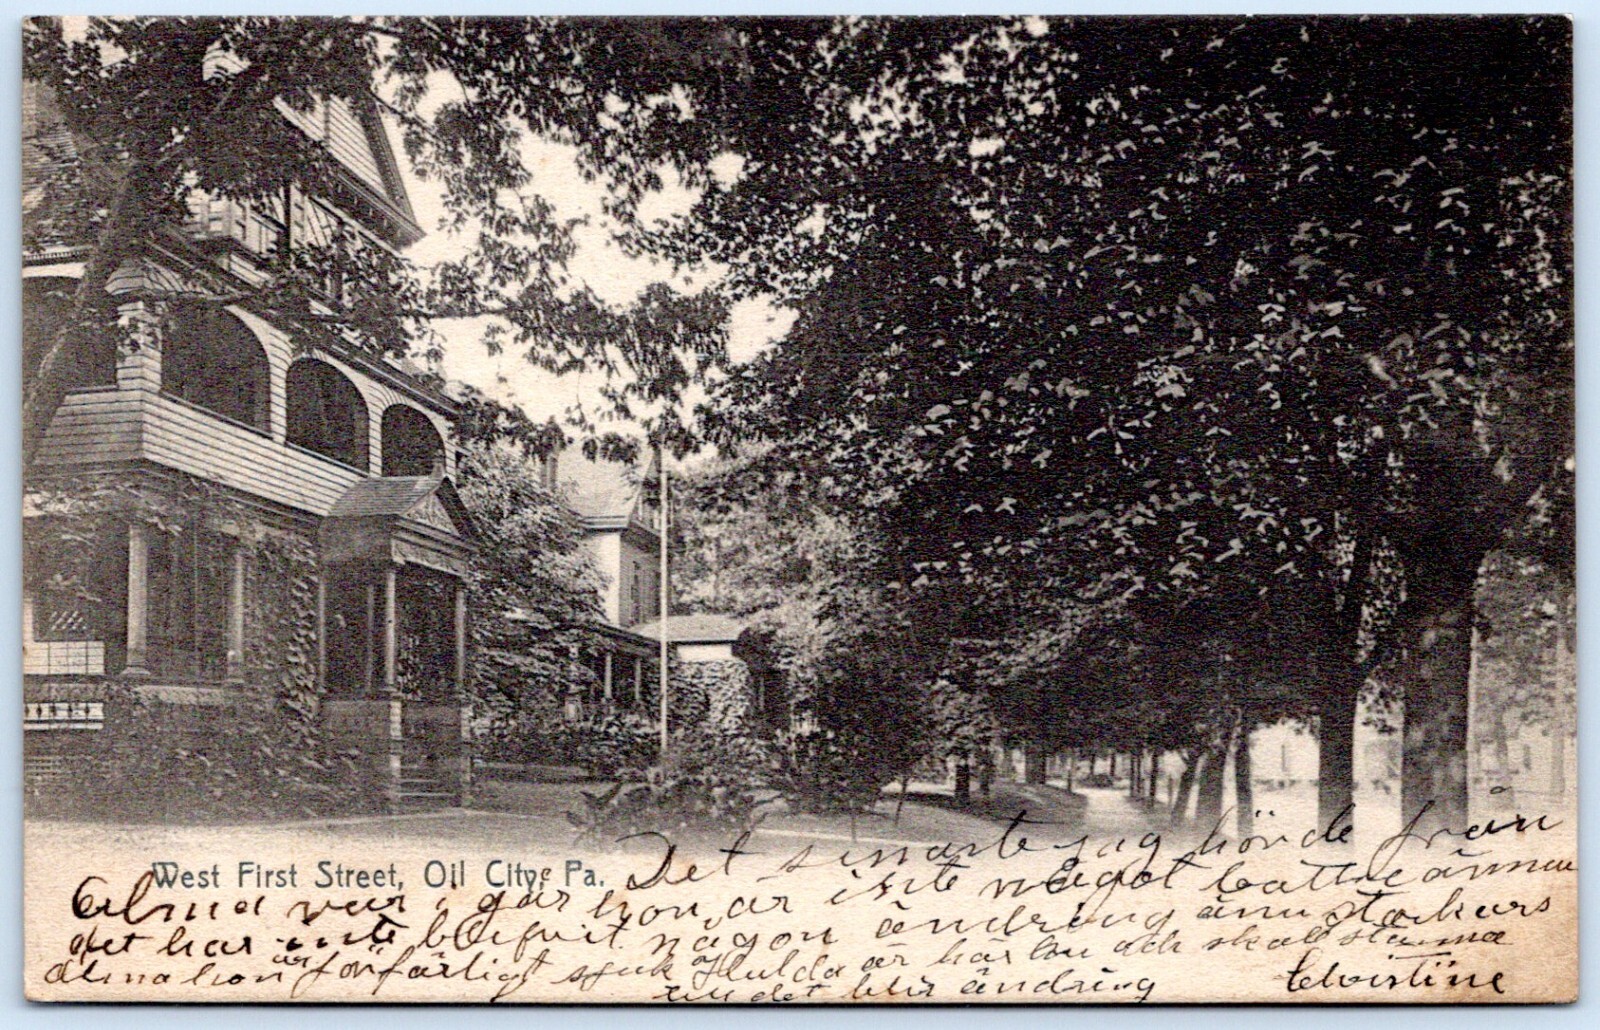 West First Street, Oil City, Pa.
Det senaste jag hörde från
Alma var i går hon ar inte något bättre ännu
det har inte blifvit någon ändring ännu stackars
Alma hon är förfärligt sjuk Hulda är här hon och skall stanna
till det blir ändring Christine